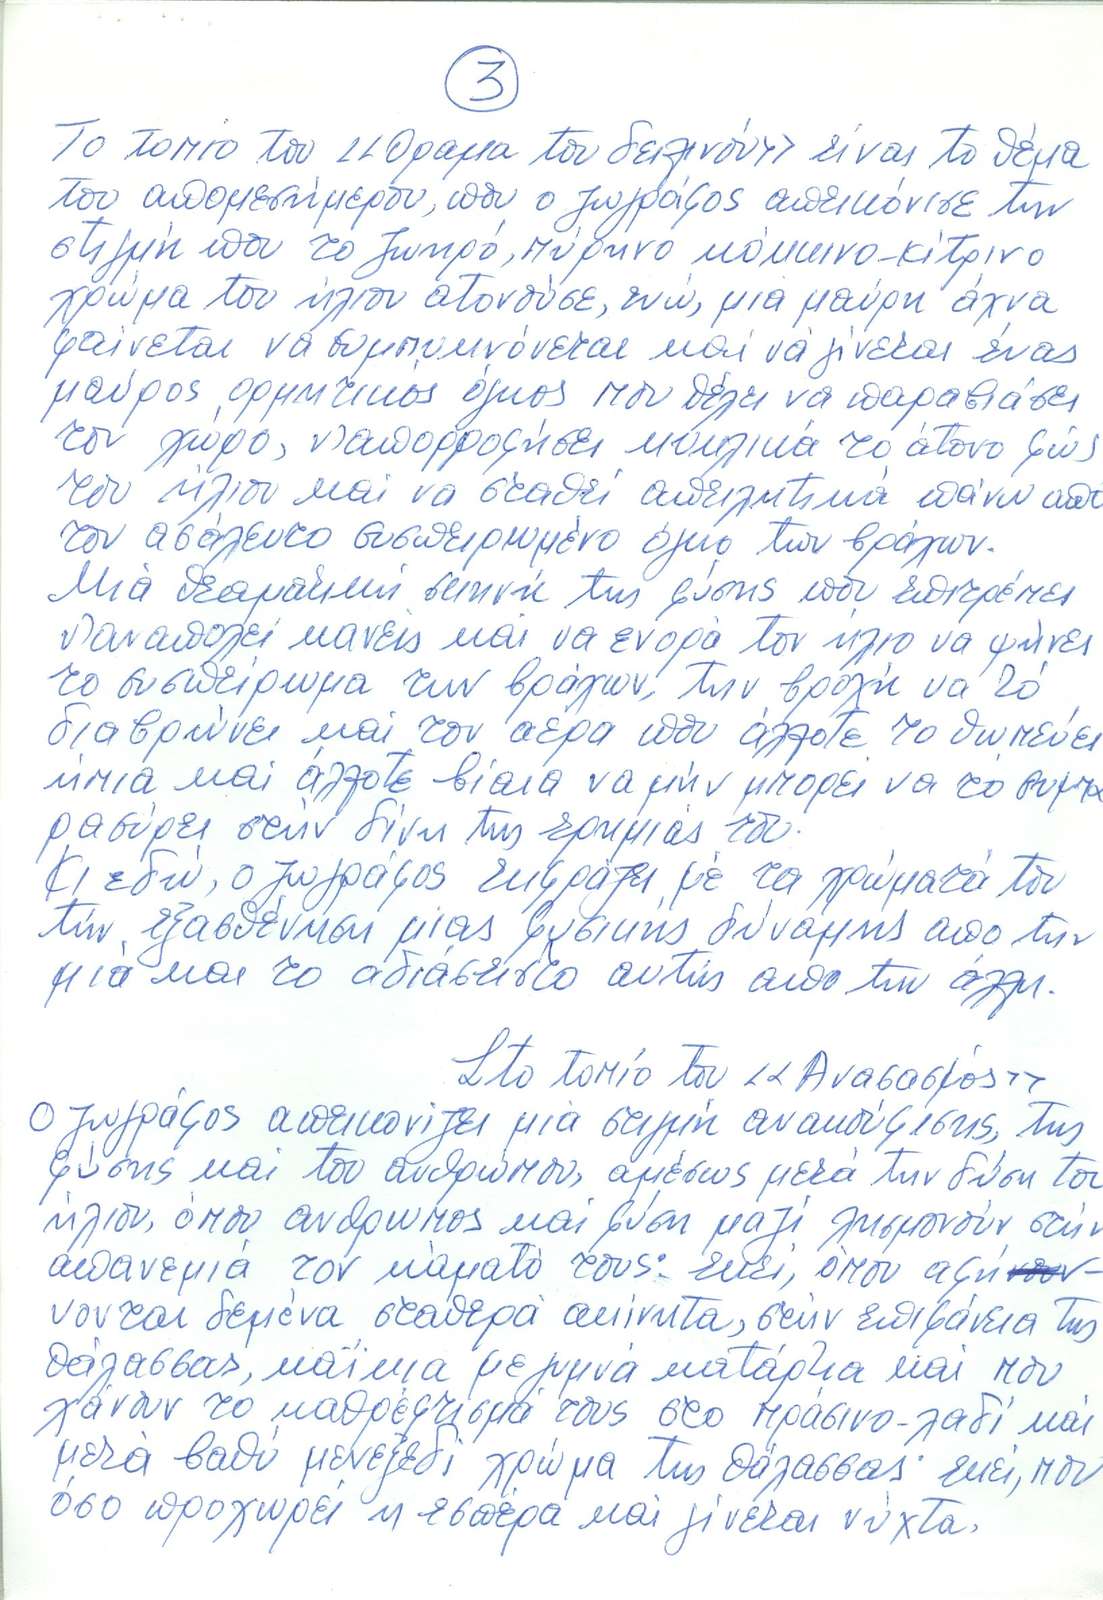 3
Το τοπίο του <<Όραμα του δειλινού>> είναι το θέμα
του απομεσήμερου, που ο ζωγράφος απεικόνισε την
στιγμή που το ζωηρό, πύρινο κόκκινο-κίτρινο
χρώμα του ήλιου ατονούσε, ενώ, μια μαύρη άχνα
φαίνεται να συμπυκνόνεται και να γίνεται ένας
μαύρος ορμητικός όγκος που θέλει να παραβιάσει
τον χώρο, ν'απορροφήσει κυκλικά το άτονο φώς
του ήλιου και να σταθεί απειλητικά πάνω από
τον ασάλευτο συσπειρωμένο όγκο των βράχων.
Μιά θεαματική σκηνή της φύσης που επιτρέπει
ν'αναπολεί κανείς και να ενορά τον ήλιο να ψήνει
το συσπείρωμα των βράχων, την βροχή να τό
διαβρώνει και τον αέρα που άλλοτε το θωπεύει
ήπια και άλλοτε βίαια να μήν μπορεί να τό συμπα
ρασύρει στήν δίνη της ερημιάς του.
Κι εδώ, ο ζωγράφος εκφράζει μέ τα χρώματά του
τήν εξασθένηση μιας φυσικής δύναμης απο την
μιά και το αδιάσειστο αυτής απο την άλλη.
Στο τοπίο του <<Ανασασμός>>
Ο ζωγράφος απεικονίζει μιά στιγμή ανακούφισης, της
φύσης και του ανθρώπου, αμέσως μετά την δύση του
ήλιου, όπου ανθρωπος και φύση μαζί λησμονούν στήν
απανεμιά τον κάματό τους· εκεί, όπου αφή-
νονται δεμένα σταθερά ακίνητα, στήν επιφάνεια της
θάλασσας, καΐκια με γυμνά κατάρτια και που
χάνουν το καθρέφτισμά τους στο πράσινο-λαδί και
μετά βαθύ μενεξεδί χρώμα της θάλασσας· εκεί, που
όσο προχωρεί η εσπέρα και γίνεται νύχτα,